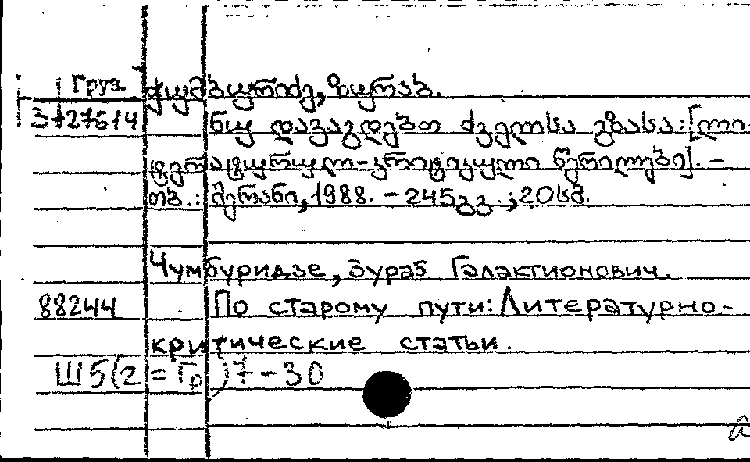 Груз
ჭუმბურიძე, ზურაბ.
3727614
ნუ დავაგდებთ ძველსა გზასა: [ლი-
ტერატურულ-კრიტიკული წერილები]. -
თბ.: მერანი, 1988. - 245გვ.; 20სმ.
Чумбуридзе, Зураб Галактионович.
88244 По старому пути: Литературно-
критические статьи.
Ш5(2=Гр)7-30